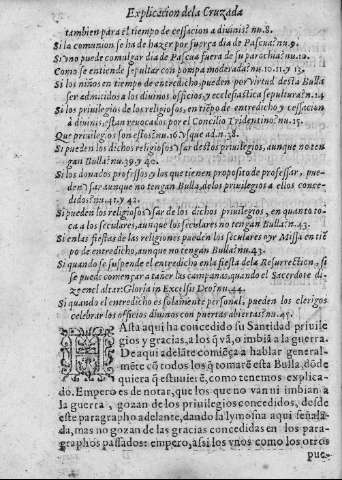 Explicacion dela Cruzada
tambien para el tiempo de cessacion a diuinis? nu.8.
Si la comunion se ha de hazer por fuerça dia de Pascua? nu.9.
Si no puede comulgar dia de Pascua fuera de su parochia? nu.10.
Como se entiende sepultar con pompa moderada? nu.10.11.y 13.
Si los niños en tiempo de entredicho, pueden por virtud desta Bulla
ser admitidos a los diuinos officios, y ecclesiastica sepultura? n.14
Si los priuilegios de los religiosos, en tiẽpo de entredicho y cessacion
à diuinis, estan reuocados por el Concilio Tridentino? nu.15.
Que priuilegios son estos? nu.16.y sque ad.n.38.
Si pueden los dichos religiosos vsar destos priuilegios, aunque no ten
gan Bulla? nu.39.y 40.
Si los donados professos y los que tienen proposito de professar, pue-
den vsar aunque no tengan Bulla, de los priuilegios a ellos conce-
didos? nu.41.y 42.
Si pueden los religiosos vsar de los dichos priuilegios, en quanto to-
ca a los seculares, aunque los seculares no tengan Bulla? n.43.
Si en las fiestas de las religiones pueden los seculares oyr Missa en tiẽ
po de entredicho, aunque no tengan Bulla? nu.43.
Si quando se suspende el entredicho en la fiesta dela Resurrection, si
se puede começar a tañer las campanas, quando el Sacerdote di-
ze en el altar: Gloria in Excelsis Deo? nu.44.
Si quando el entredicho es solamente personal, pueden los clerigos
celebrar los officios diuinos con puertas abiertas? nu.45.
HAsta aqui ha concedido su Santidad priuile
gios y gracias, a los q̃ vã, o imbiã a la guerra.
De aqui adelãte comiẽça a hablar general-
mẽte cõ todos los q̃ tomarẽ esta Bulla, dõde
quiera q̃ estuuierẽ, como tenemos explica-
do. Empero es de notar, que los que no van ni imbian a
la guerra, gozan de los priuilegios concedidos, desde
este paragrapho adelante, dando la lymosna aqui señala-
da, mas no gozan de las gracias concedidas en los para-
graphos passados: empero, assi los vnos como los otros
pue-